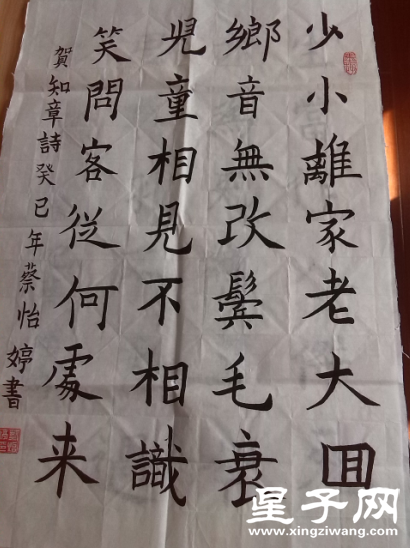 少小離家老大回
鄉音無改鬓毛衰
児童相見不相識
笑問客從何處来
賀知章詩癸巳年蔡怡婷書
星子网
www.xingziwang.com